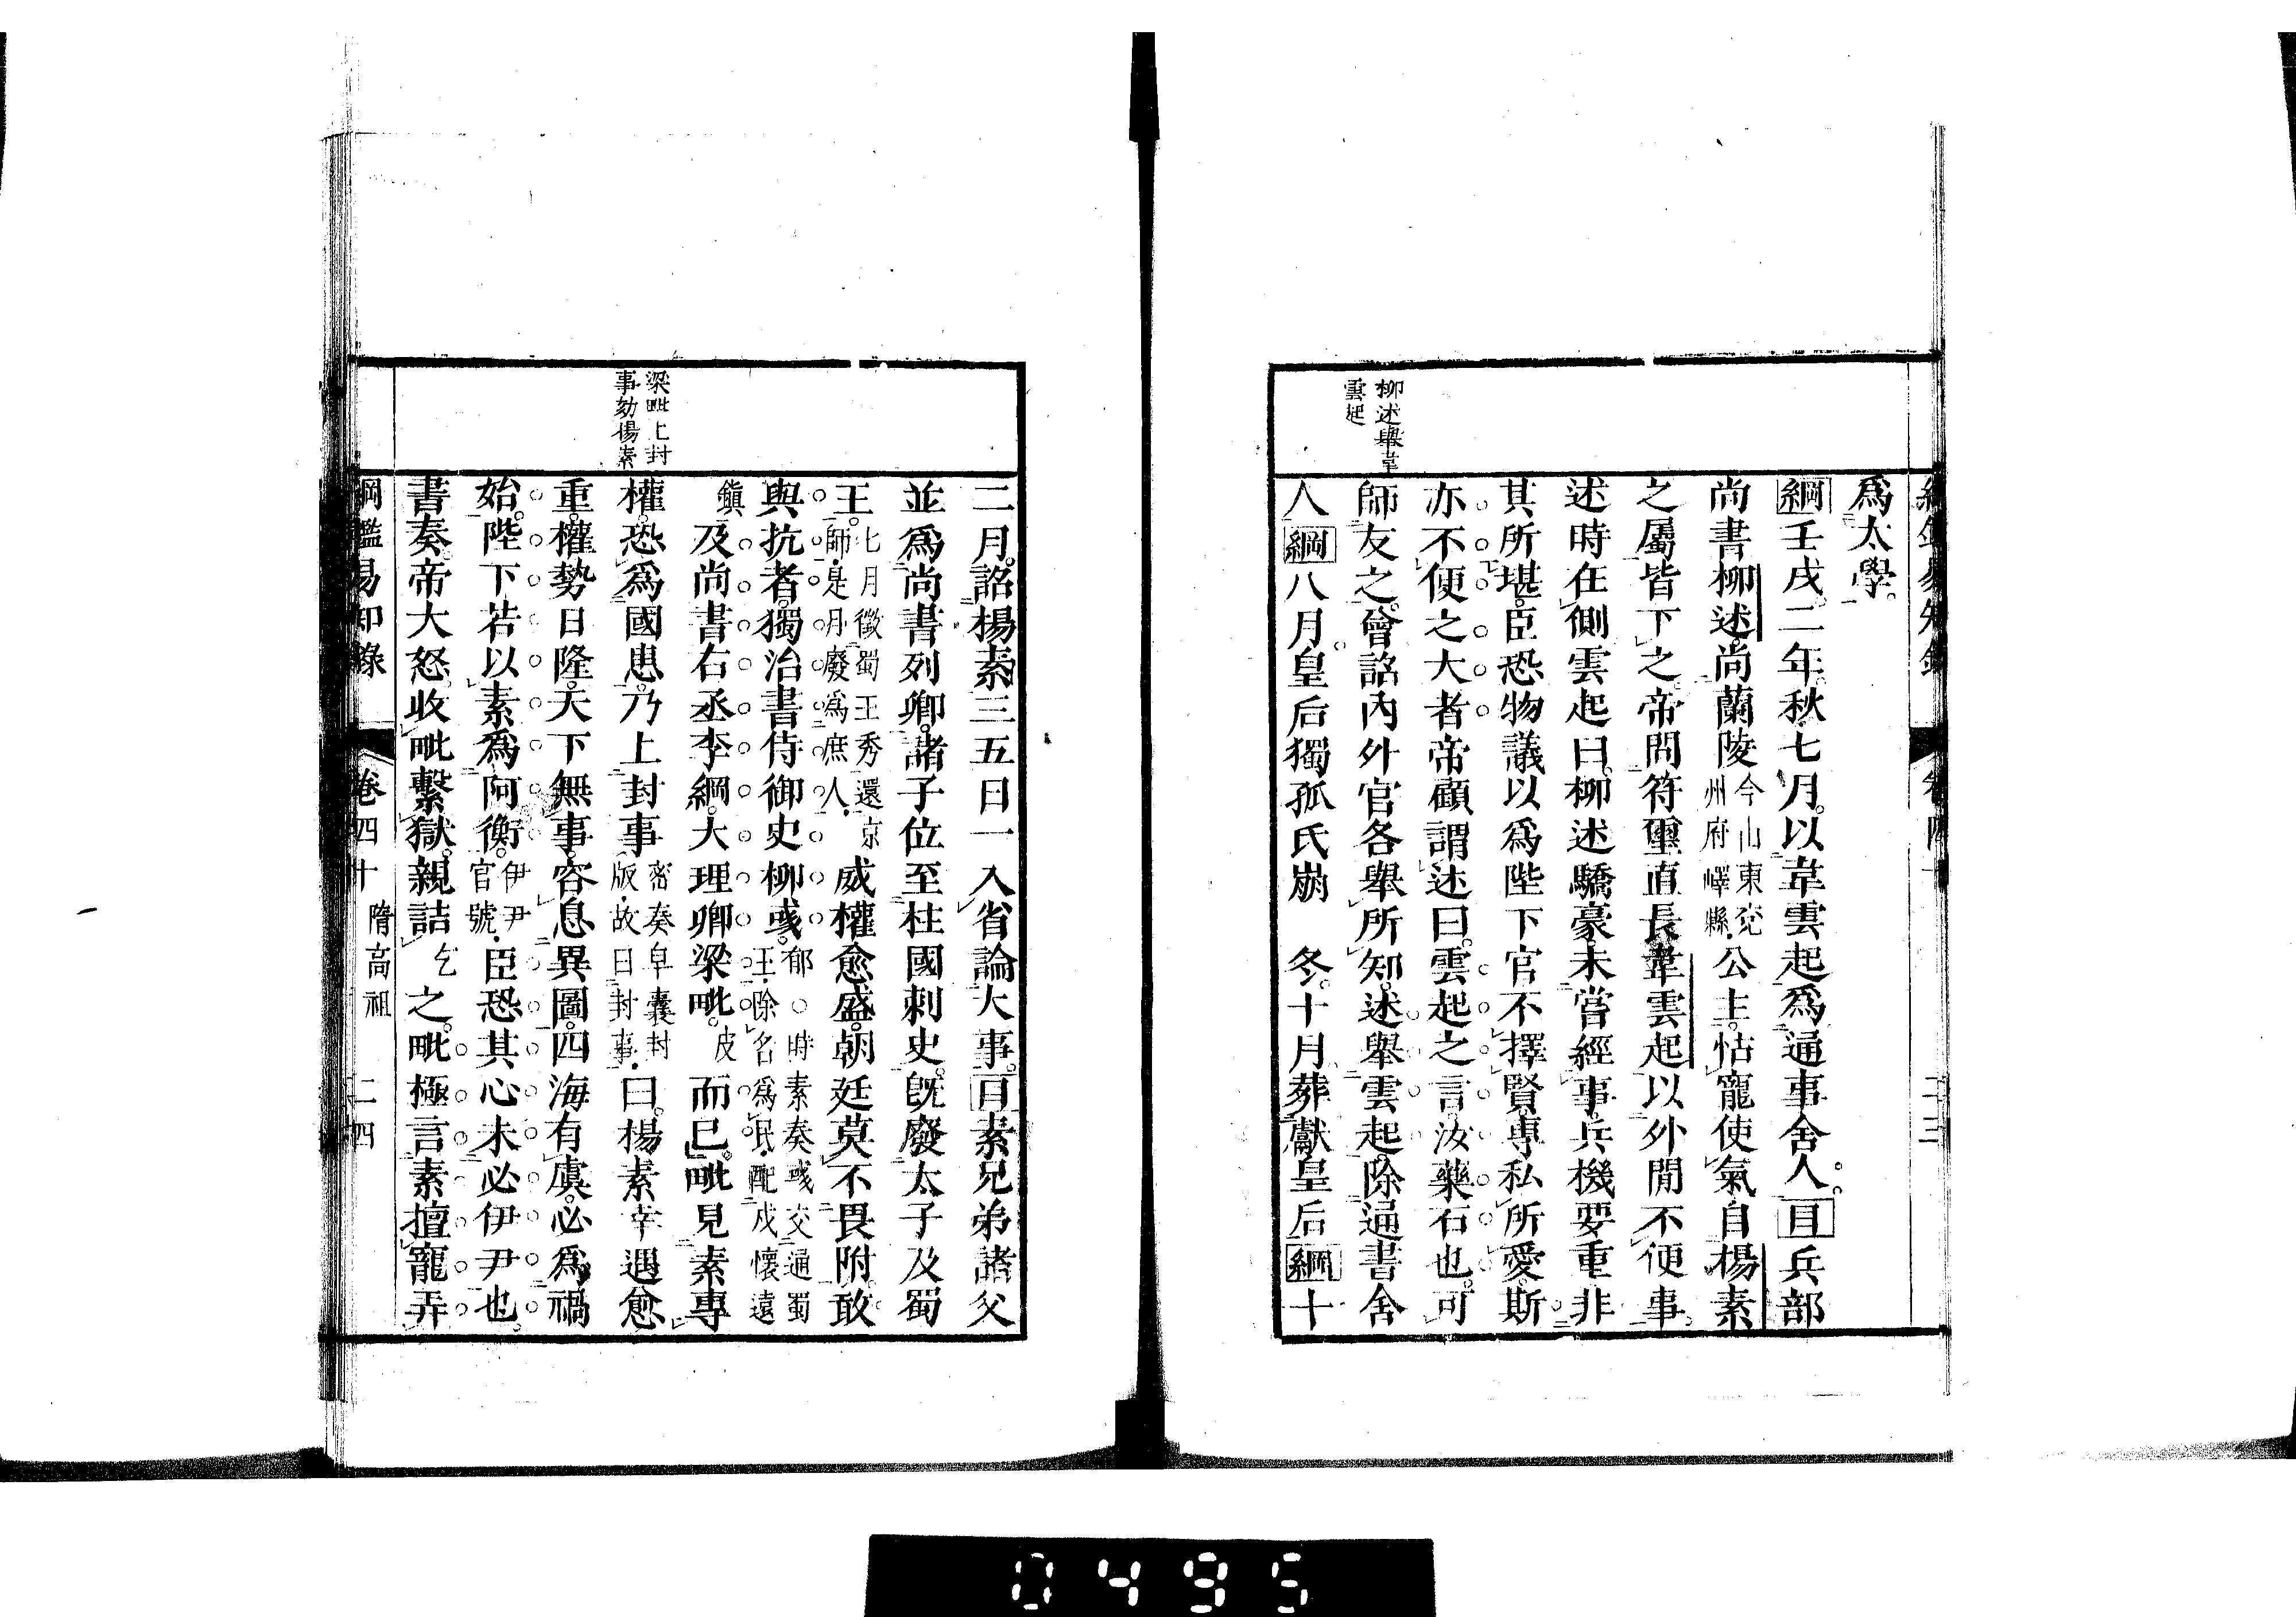 柳述舉韋
雲起
爲太學。
綱壬戌二年。秋七月。以韋雲起爲通事舍人。目兵部
尚書柳述。尚蘭陵今山東兗州府嶧縣。公主。怙寵使氣。自楊素
之屬。皆下之。帝問符璽直長韋雲起以外閒不便事。
述時在側。雲起曰。柳述驕豪。未嘗經事。兵機要重。非
其所堪。臣恐物議以爲陛下官不擇賢。專私所愛。斯
亦不便之大者。帝顧謂述曰。雲起之言。汝藥石也。可
師友之。會詔內外官各舉所知。述舉雲起。除通書舍
人綱八月。皇后獨孤氏崩 冬。十月。葬獻皇后綱十
梁毗上封
事劾楊素
二月。詔楊素三五日一入省論大事。目素兄弟諸父
並爲尚書列卿。諸子位至柱國刺史。旣廢太子及蜀
王。七月徵蜀王秀還京師。是月廢爲庶人。威權愈盛。朝廷莫不畏附。敢
與抗者。獨治書侍御史柳彧。郁○時素奏彧交通蜀王。除名爲民。配戍懷遠
鎮及尚書右丞李綱。大理卿梁毗。皮而已。毗見素專
權。恐爲國患。乃上封事密奏皁囊封版。故曰封事。曰。楊素幸遇愈
重。權勢日隆。天下無事。容息異圖。四海有虞。必爲禍
始。陛下若以素爲阿衡。伊尹官號。臣恐其心未必伊尹也。
書奏。帝大怒。收毗繫獄。親詰乞之。毗極言素擅寵弄
綱鑑易知錄 卷四十 隋高祖 二四